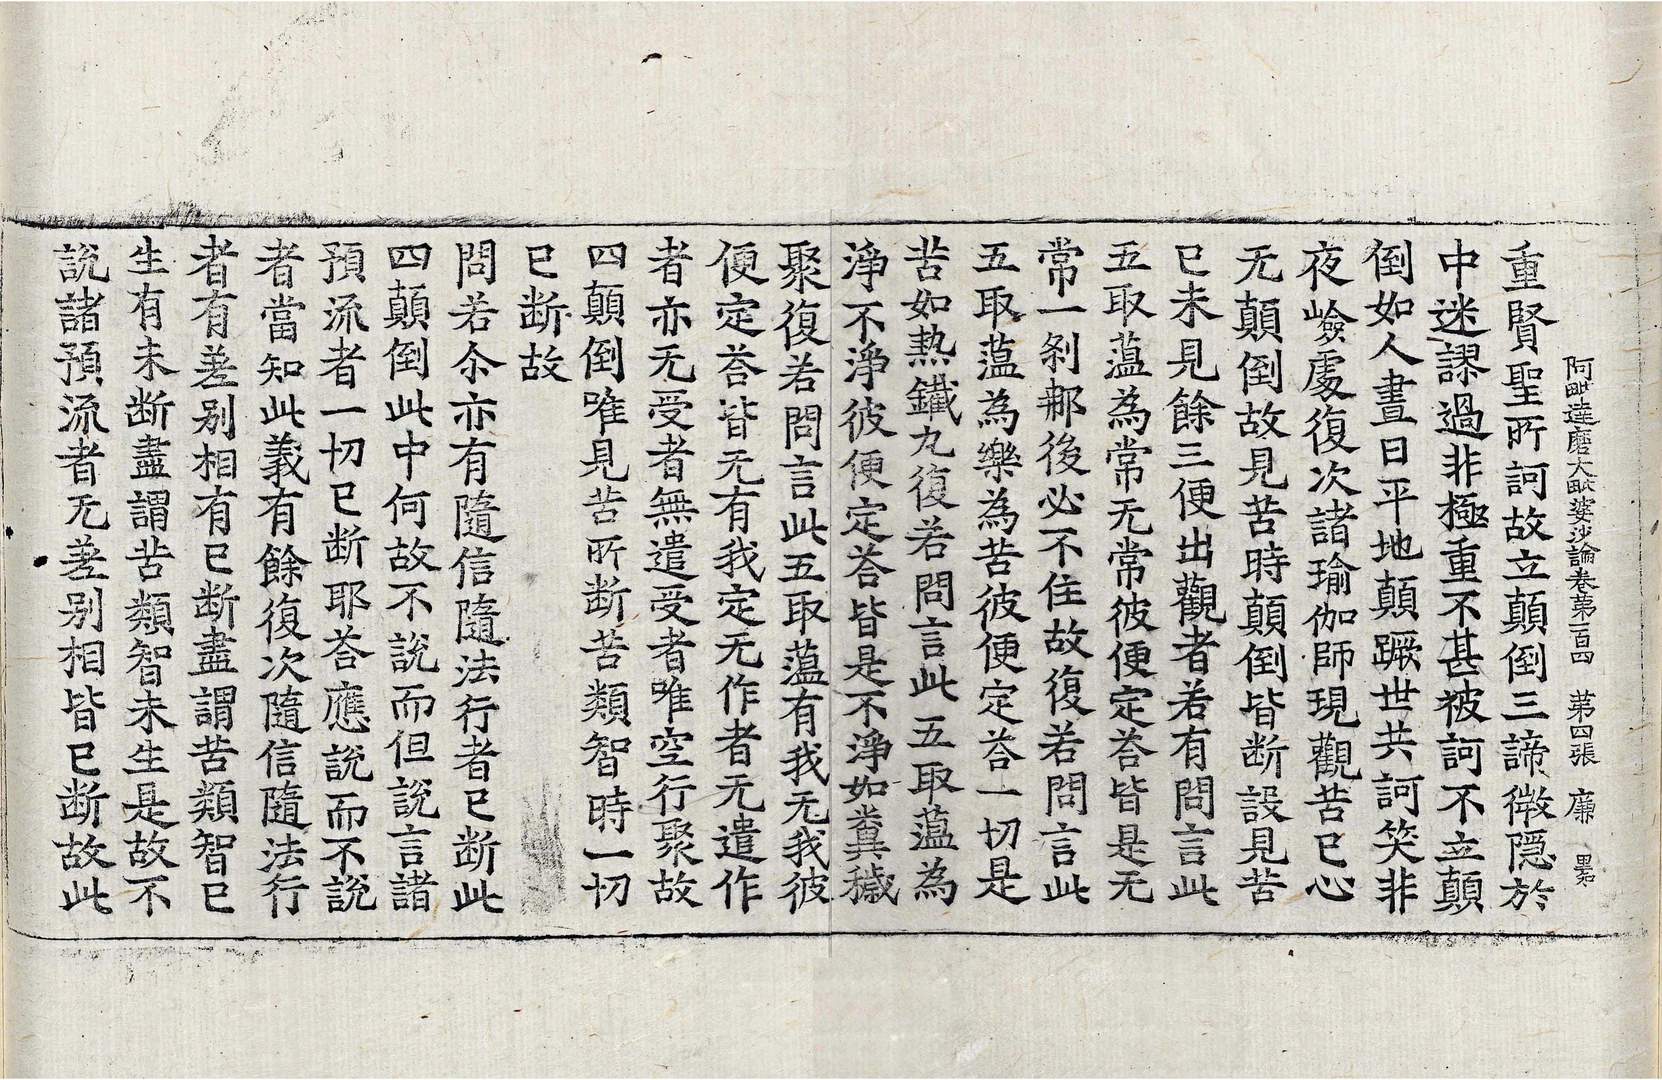 阿毗達磨大毗婆沙論卷第一百四　第四張　廉
重賢聖所訶故立顛倒三諦微隱於
中迷謬過非極重不甚被訶不立顛
倒如人晝日平地顛蹶世共訶笑非
夜嶮處復次諸瑜伽師現觀苦已心
无顛倒故見苦時顛倒皆断設見苦
已未見餘三便出觀者若有問言此
五取蘊為常无常彼便定荅皆是无
常一剎那後必不住故復若問言此
五取蘊為樂為苦彼便定荅一切是
苦如熱鐵丸復若問言此五取蘊為
淨不淨彼便定荅皆是不淨如糞穢
聚復若問言此五取蘊有我无我彼
便定荅皆无有我定无作者无遣作
者亦无受者無遣受者唯空行聚故
四顛倒唯見苦所断苦類智時一切
已断故
問若尒亦有隨信隨法行者已断此
四顛倒此中何故不說而但說言諸
預流者一切已断耶荅應說而不說
者當知此義有餘復次隨信隨法行
者有差别相有已断盡謂苦類智已
生有未断盡謂苦類智未生是故不
說諸預流者无差别相皆已断故此